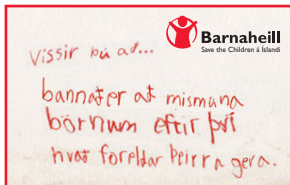 Barnaheill
Save the Children á Íslandi
Vissir þú að...
bannat er að mismuna
börnum eftir því
hvað foreldar þeirra gera.